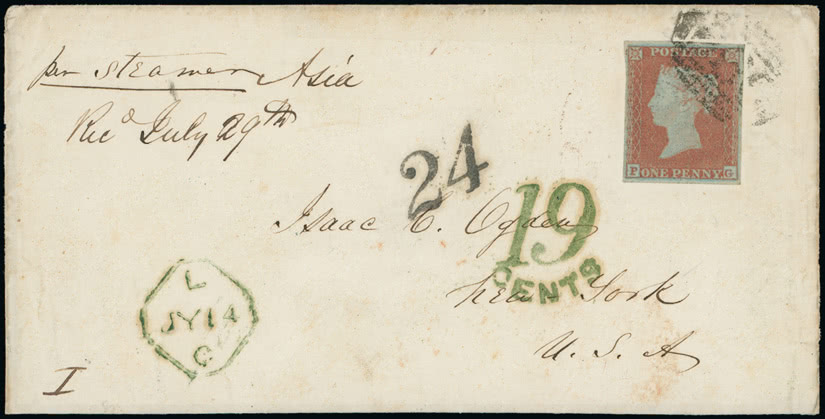 per steamer Asia
Rec^d July 29th
POSTAGE
P ONE PENNY G
24
19
CENTS
Isaac C. Ogden
New York
U. S. A
L
JY 14
I